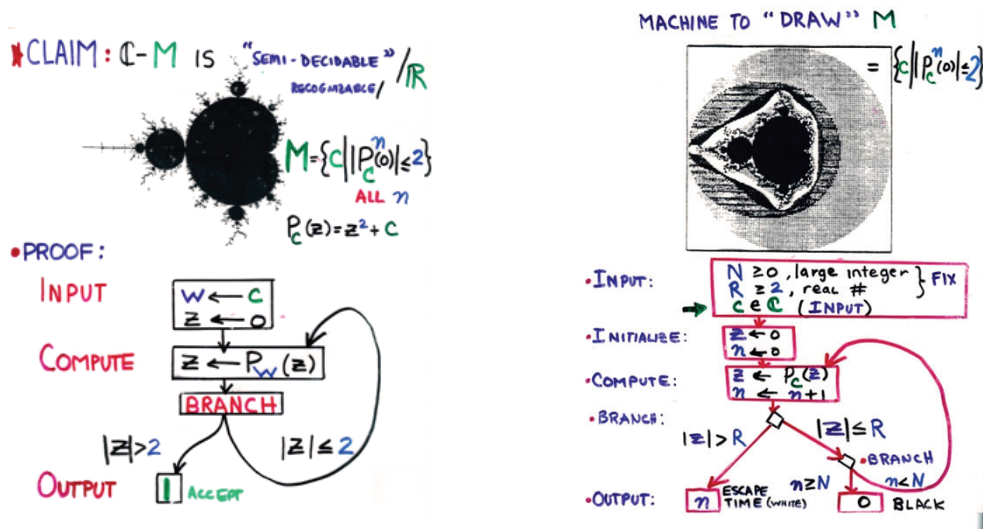 *CLAIM: ℂ-M IS "SEMI-DECIDABLE"/ℝ
RECOGNIZABLE/
M={C||P_C^n(0)|≤2}
ALL n
P_C(Z)=Z²+C
•PROOF:
INPUT
W ← C
Z ← 0
COMPUTE
Z ← P_W(Z)
BRANCH
|Z|>2
|Z|≤2
OUTPUT
1 ACCEPT
MACHINE TO "DRAW" M
= {C||P_C^n(0)|≤2}
•INPUT:
N ≥0, large integer } FIX
R ≥2, real #
C ∈ ℂ (INPUT)
•INITIALIZE:
Z ← 0
n ← 0
•COMPUTE:
Z ← P_C(Z)
n ← n+1
•BRANCH:
|Z|>R
|Z|≤R
•BRANCH
n≥N
n<N
•OUTPUT:
n ESCAPE TIME (WHITE)
0 BLACK